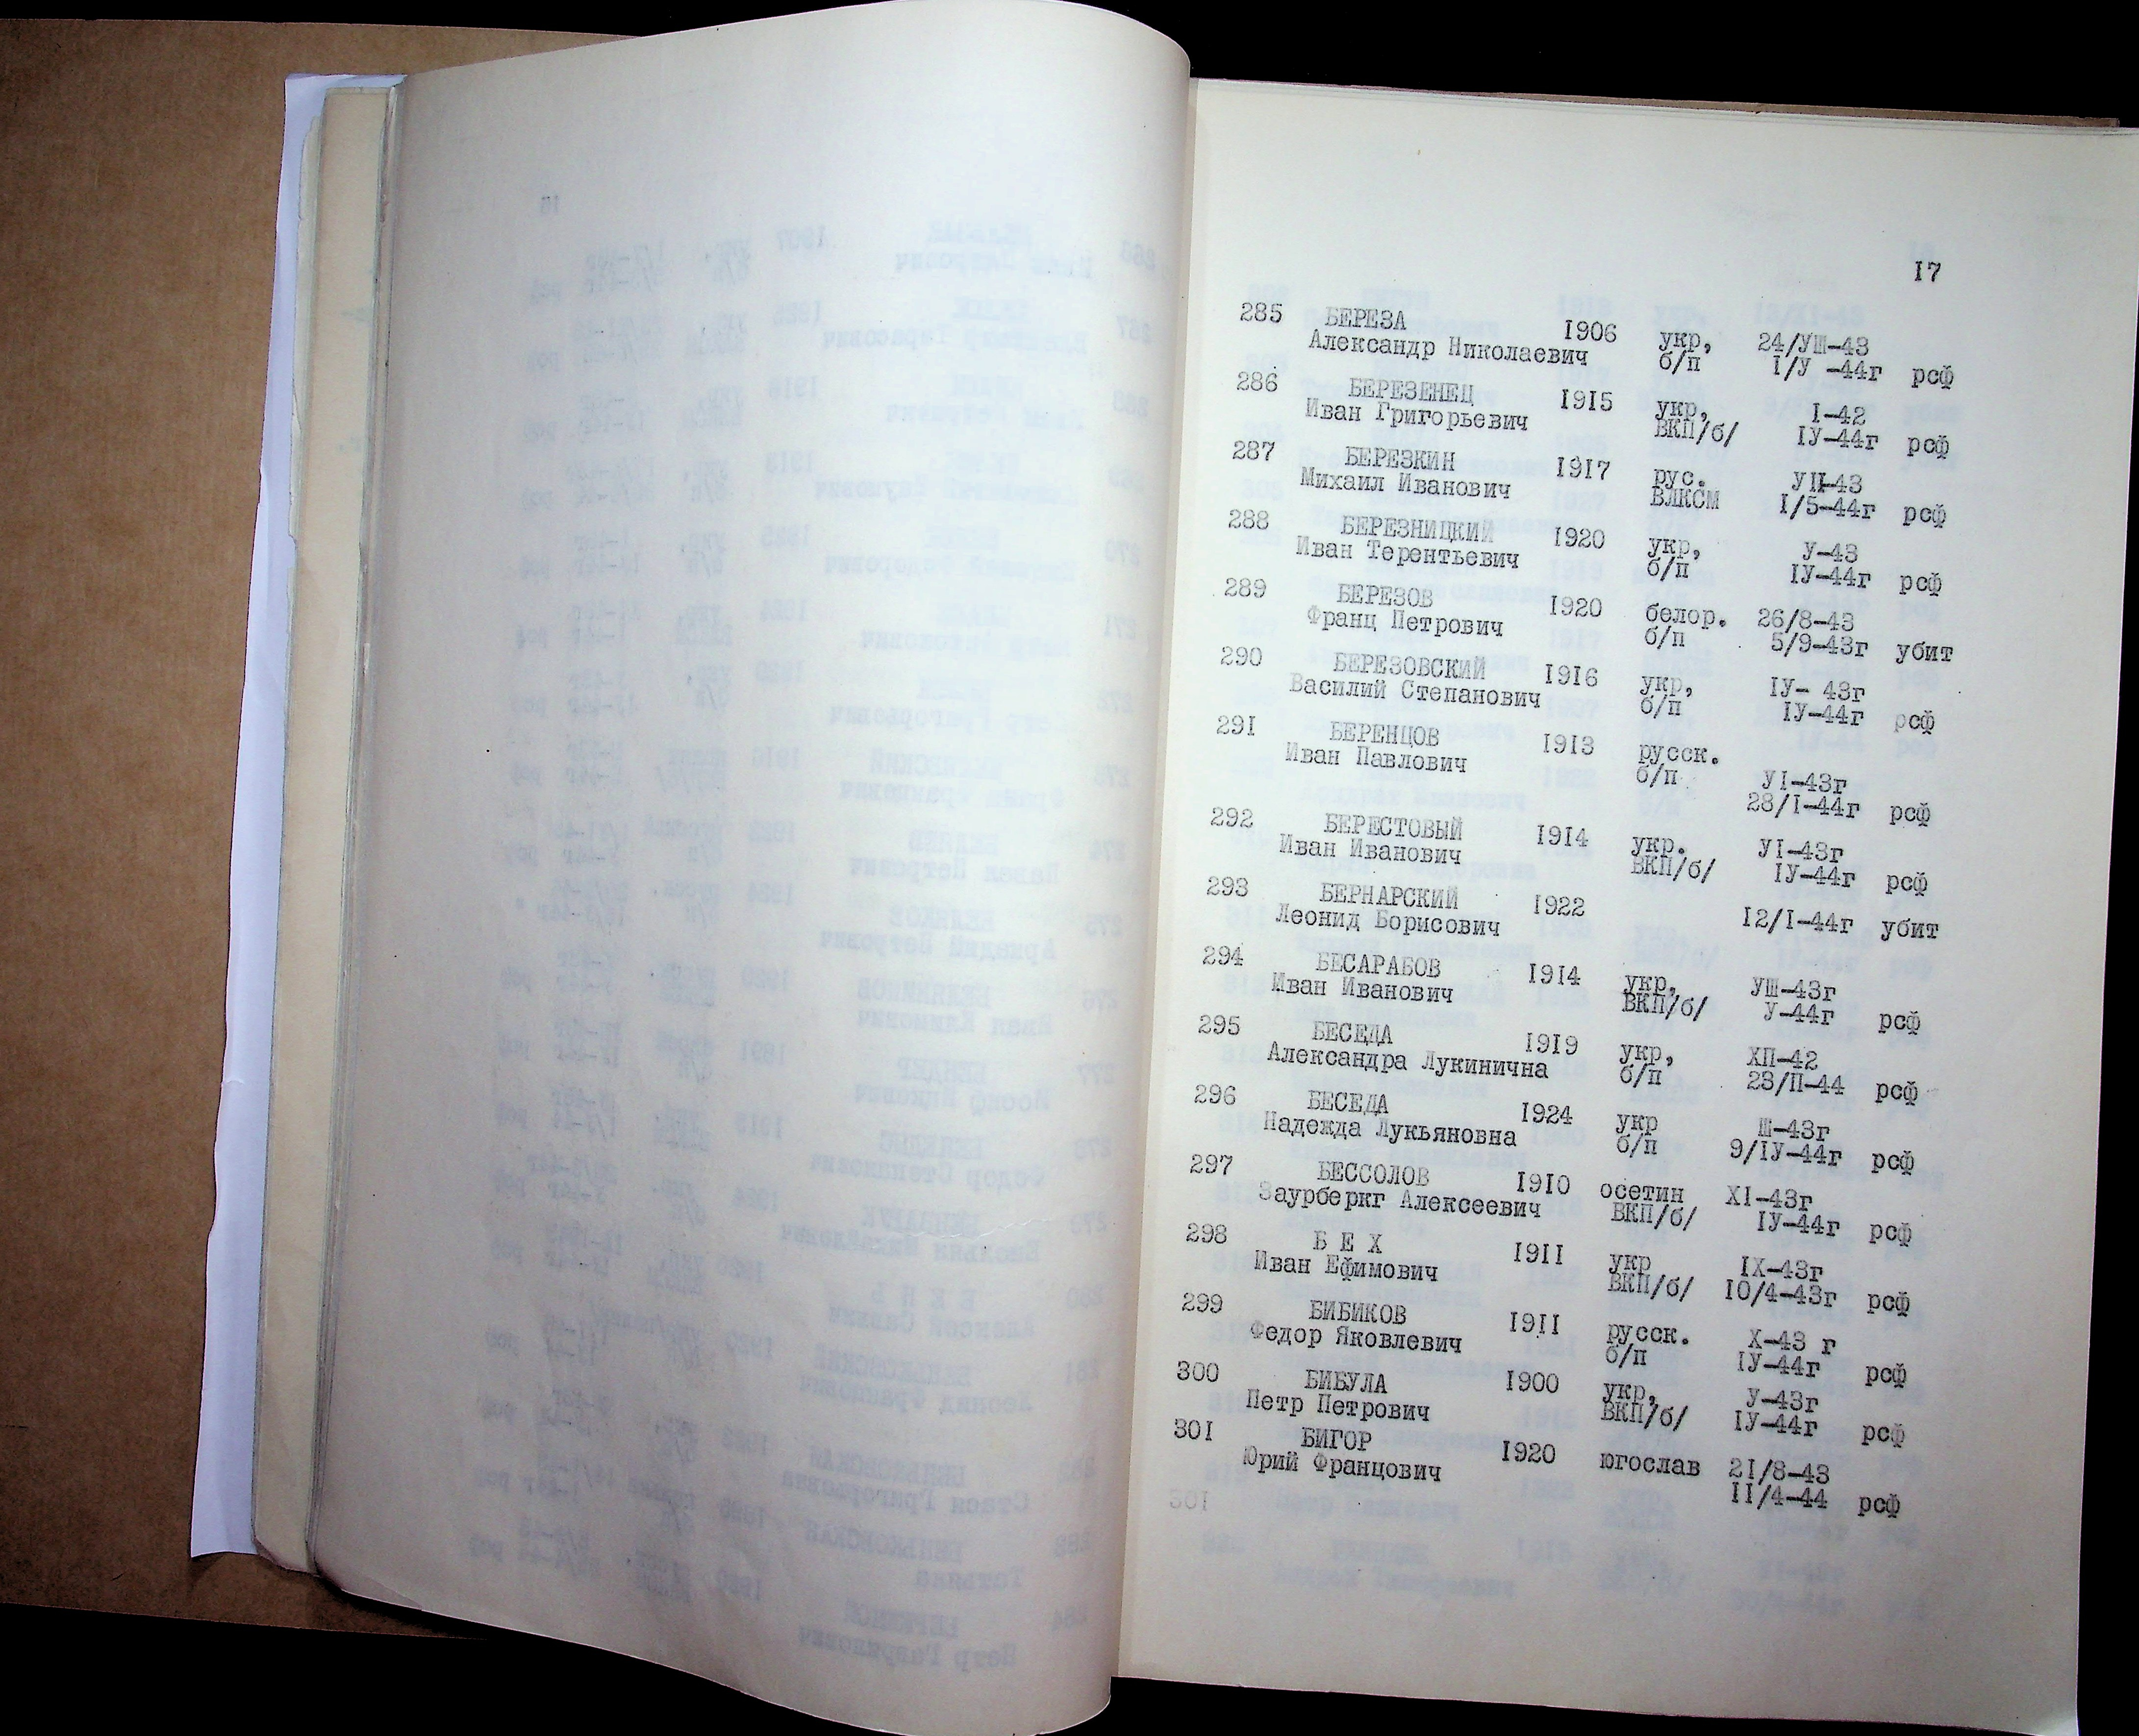 I7
285 БЕРЕЗА I906 укр, 24/УШ-43
Александр Николаевич б/п I/У -44г рсф
286 БЕРЕЗЕНЕЦ I9I5 укр, I-42
Иван Григорьевич ВКП/б/ IУ-44г рсф
287 БЕРЕЗКИН I9I7 рус. УII-43
Михаил Иванович ВЛКСМ I/5-44г рсф
288 БЕРЕЗНИЦКИЙ I920 укр, У-43
Иван Терентьевич б/п IУ-44г рсф
289 БЕРЕЗОВ I920 белор. 26/8-43
Франц Петрович б/п 5/9-43г убит
290 БЕРЕЗОВСКИЙ I9I6 укр, IУ- 43г
Василий Степанович б/п IУ-44г рсф
29I БЕРЕНЦОВ I9I3 русск.
Иван Павлович б/п УI-43г
28/I-44г рсф
292 БЕРЕСТОВЫЙ I9I4 укр. УI-43г
Иван Иванович ВКП/б/ IУ-44г рсф
293 БЕРНАРСКИЙ I922 I2/I-44г убит
Леонид Борисович
294 БЕСАРАБОВ I9I4 укр, УШ-43г
Иван Иванович ВКП/б/ У-44г рсф
295 БЕСЕДА I9I9 укр, ХП-42
Александра Лукинична б/п 23/П-44 рсф
296 БЕСЕДА I924 укр Ш-43г
Надежда Лукьяновна б/п 9/IУ-44г рсф
297 БЕССОЛОВ I9I0 осетин ХI-43г
Заурберкг Алексеевич ВКП/б/ IУ-44г рсф
298 Б Е Х I9II укр IХ-43г
Иван Ефимович ВКП/б/ I0/4-43г рсф
299 БИБИКОВ I9II русск. Х-43 г
Федор Яковлевич б/п IУ-44г рсф
300 БИБУЛА I900 укр, У-43г
Петр Петрович ВКП/б/ IУ-44г рсф
30I БИГОР I920 югослав 2I/8-43
Юрий Францович II/4-44 рсф
30I